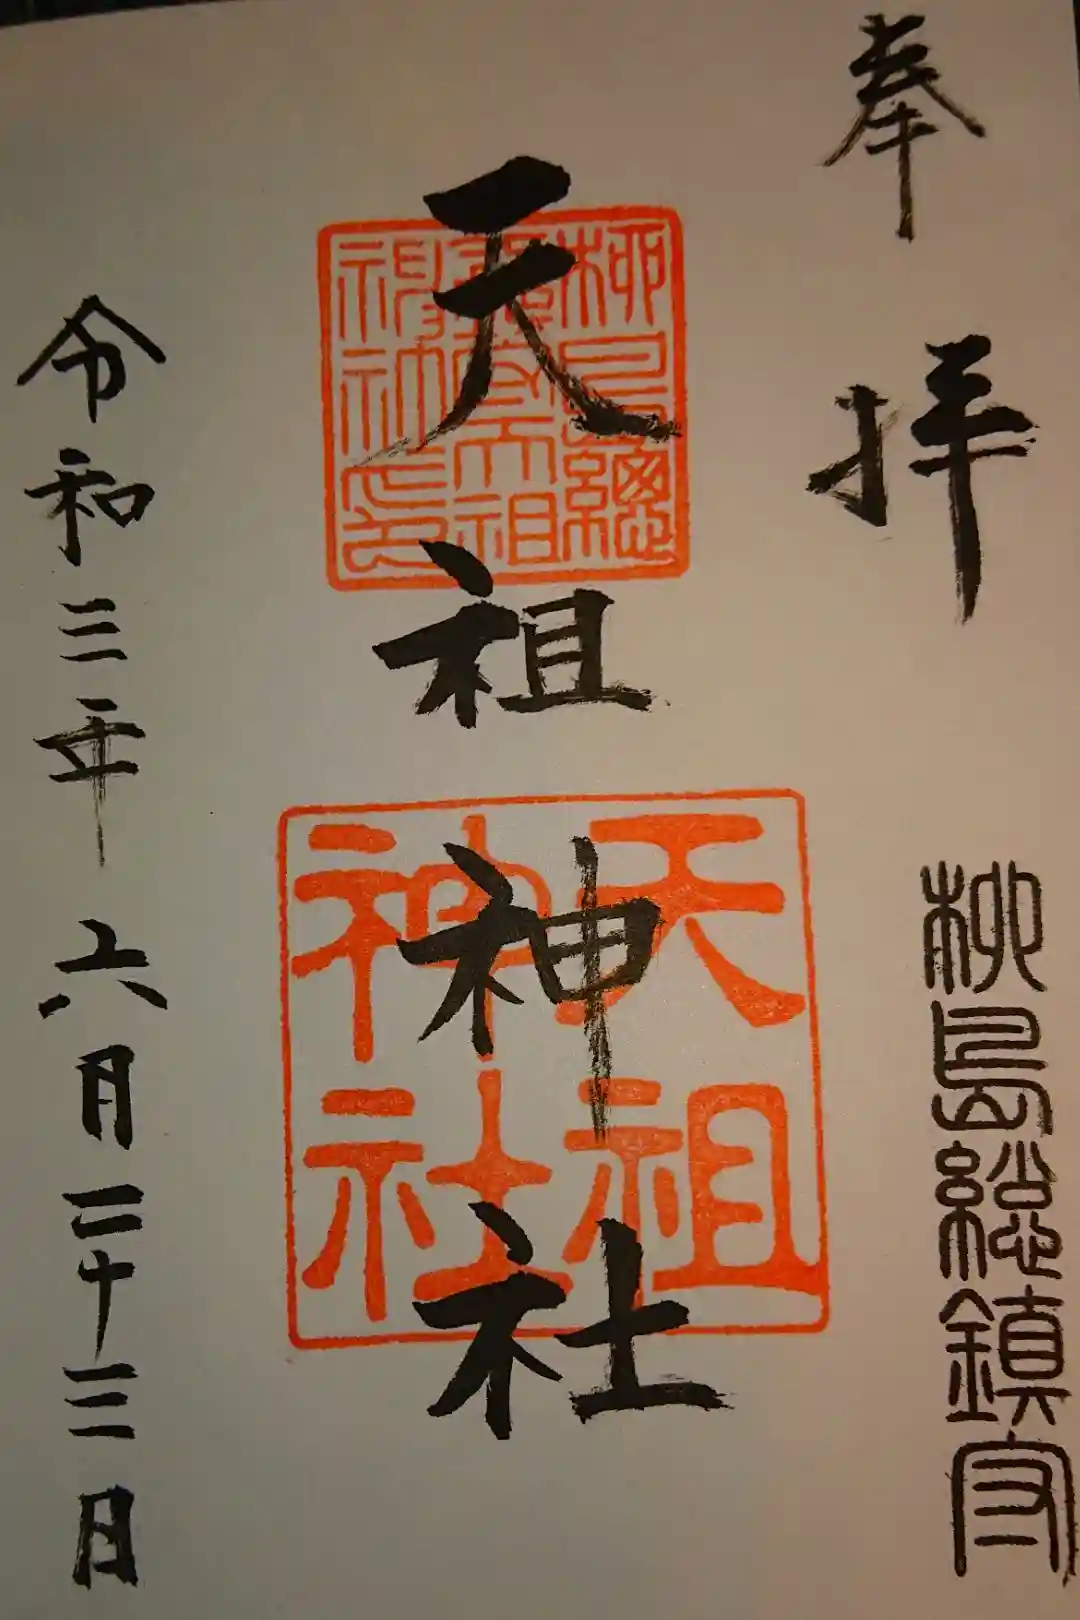 奉拝
柳島総鎮守
天祖神社
柳島總鎮守天祖神社之印
天祖神社
令和三年六月二十三日